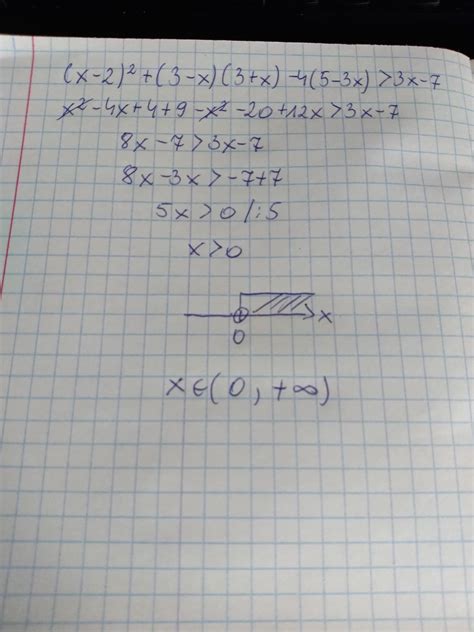 (x-2)² + (3-x)(3+x) -4(5-3x) > 3x-7
x² -4x+4+9 -x² -20+12x > 3x-7
8x -7 > 3x-7
8x -3x > -7+7
5x > 0 /:5
x > 0
x
0
x∈(0, +∞)